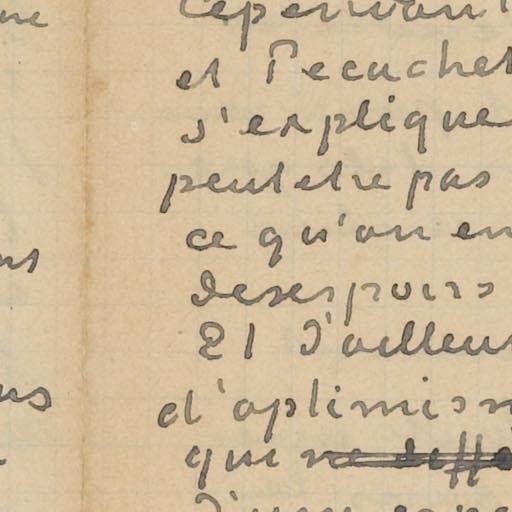 Cependant
et Pecuchet
s'explique
peut etre pas
ce qu'on en
desespoirs
Et d'ailleurs
d'optimism
qui ne